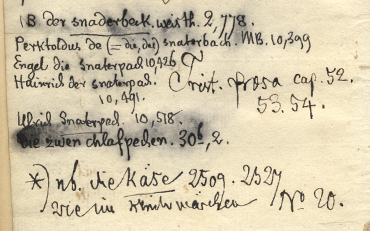 18 der snaderbeck. weisth. 2,778.
Perktoldus de (= die, dei) snaterbach. MB. 10,399
Engel die Snaterpad 10,426
Hainrich der snaterpad. Trist. prosa cap. 52.
10,491. 53. 54.
Ulrich Snaterped. 10,518.
die zwen chlafpechen. 30b,2.
*) nb. die Käse 2509. 2527
wie im märchen No 20.